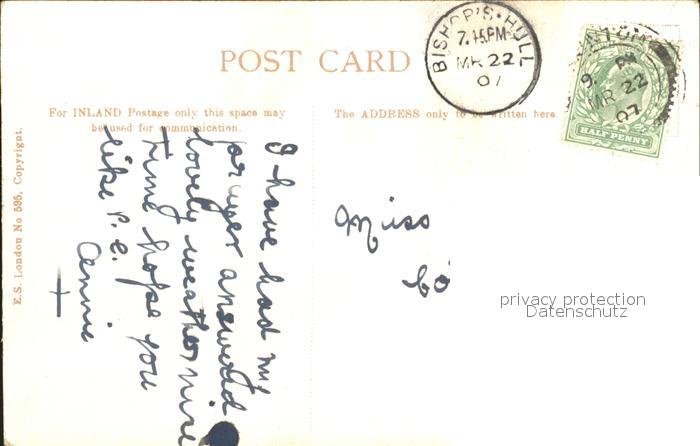 POST CARD
For INLAND Postage only this space may
be used for communication.
The ADDRESS only to be written here.
E.S. London No 595. Copyright.
BISHOP'S·HULL
7.15PM
MR 22
07
9. PM
MR 22
07
HALF PENNY
I have had my
prayer answered
lovely weather nice
time hope you
like P.C.
Annie
Miss
Co
privacy protection
Datenschutz